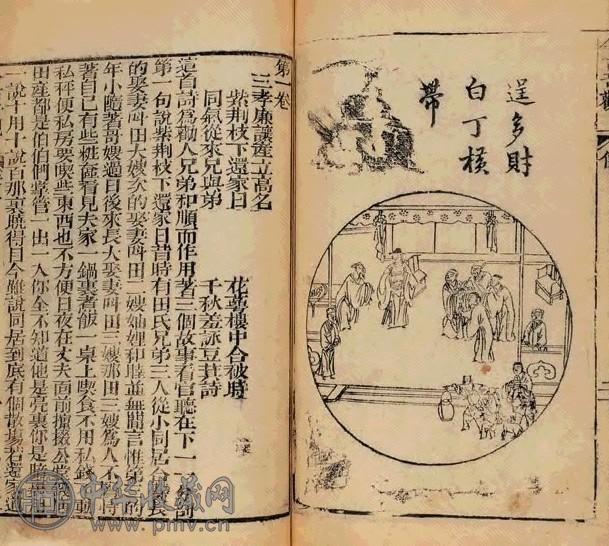 逞多財
白丁橫
帶
第一卷
三孝廉讓產立高名
紫荊枝下還家日　花萼樓中合被時
同氣從來兄與弟　千秋羞詠豆萁詩
這首詩為勸人兄弟和順而作用著三個故事看官聽在下一一分剖
第一句說紫荊枝下還家日昔時有田氏兄弟三人從小同居合爨長
的娶妻叫田大嫂次的娶妻叫田二嫂妯娌和睦並無間言惟第三的
年小隨著哥嫂過日後來長大娶妻叫田三嫂那田三嫂為人不賢恃
著自己有些粧奩看見夫家一鍋裏煮飯一桌上喫食不用私錢不動
私秤便私房要喫些東西也不方便日夜在丈夫面前攛掇公堂
田產都是伯伯們掌管一出一入你全不知道他是亮裏你是暗
一說十用十說百那裏曉得目今雖說同居到底有個散場若還家道
中华收藏网
www.pmv.cn